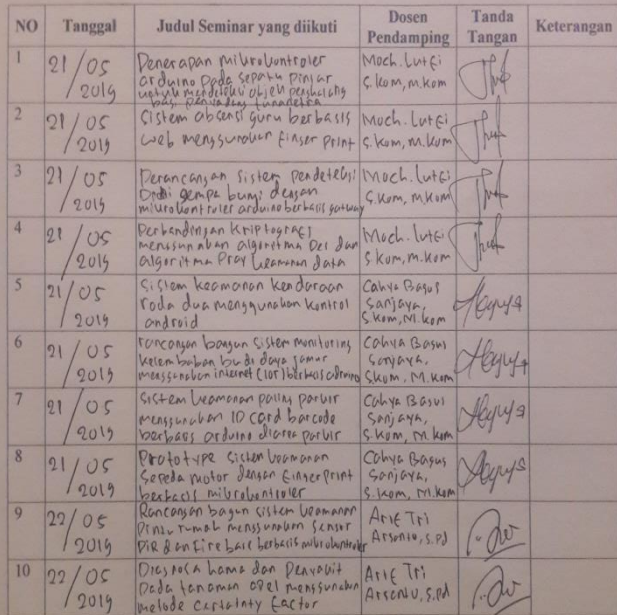 NO Tanggal Judul Seminar yang diikuti Dosen Pendamping Tanda Tangan Keterangan
1 21/05 2019
Penerapan mikrokontroler
arduino pada sepatu pintar
untuk mendeteksi objek penghalang
bagi penyandang tunanetra
Moch. Lutfi
S.kom, M.kom
2 21/05 2019
Sistem absensi guru berbasis
web menggunakan Finger print
Moch. Lutfi
S.kom, M.kom
3 21/05 2019
Perancangan Sistem pendeteksi
Dini gempa bumi dengan
mikrokontroler arduino berbasis gateway
Moch. Lutfi
S.kom, M.kom
4 21/05 2019
Perbandingan Kriptografi
menggunakan algoritma Des dan
algoritma keamanan data
Moch. Lutfi
S.kom, M.kom
5 21/05 2019
Sistem keamanan kendaraan
roda dua menggunakan kontrol
android
Cahya Bagus
Sanjaya,
S.kom, M.kom
6 21/05 2019
rancangan bangun sistem monitoring
kelembaban budi daya jamur
menggunakan internet (IOT) berbasis
Cahya Bagus
Sanjaya,
S.kom, M.kom
7 21/05 2019
Sistem keamanan palang parkir
menggunakan ID card barcode
berbasis arduino diarea parkir
Cahya Bagus
Sanjaya,
S.kom, M.kom
8 21/05 2019
Prototype sistem keamanan
Sepeda motor dengan Fingerprint
berbasis mikrokontroler
Cahya Bagus
Sanjaya,
S.kom, M.kom
9 22/05 2019
Rancangan bagun sistem keamanan
Pintu rumah menggunakan sensor
PIR dan Firebase berbasis mikrokontroler
Arif Tri
Arsanto, S.pd
10 22/05 2019
Diagnosa hama dan Penyakit
Pada tanaman apel menggunakan
metode certainty Factor
Arif Tri
Arsanto, S.pd